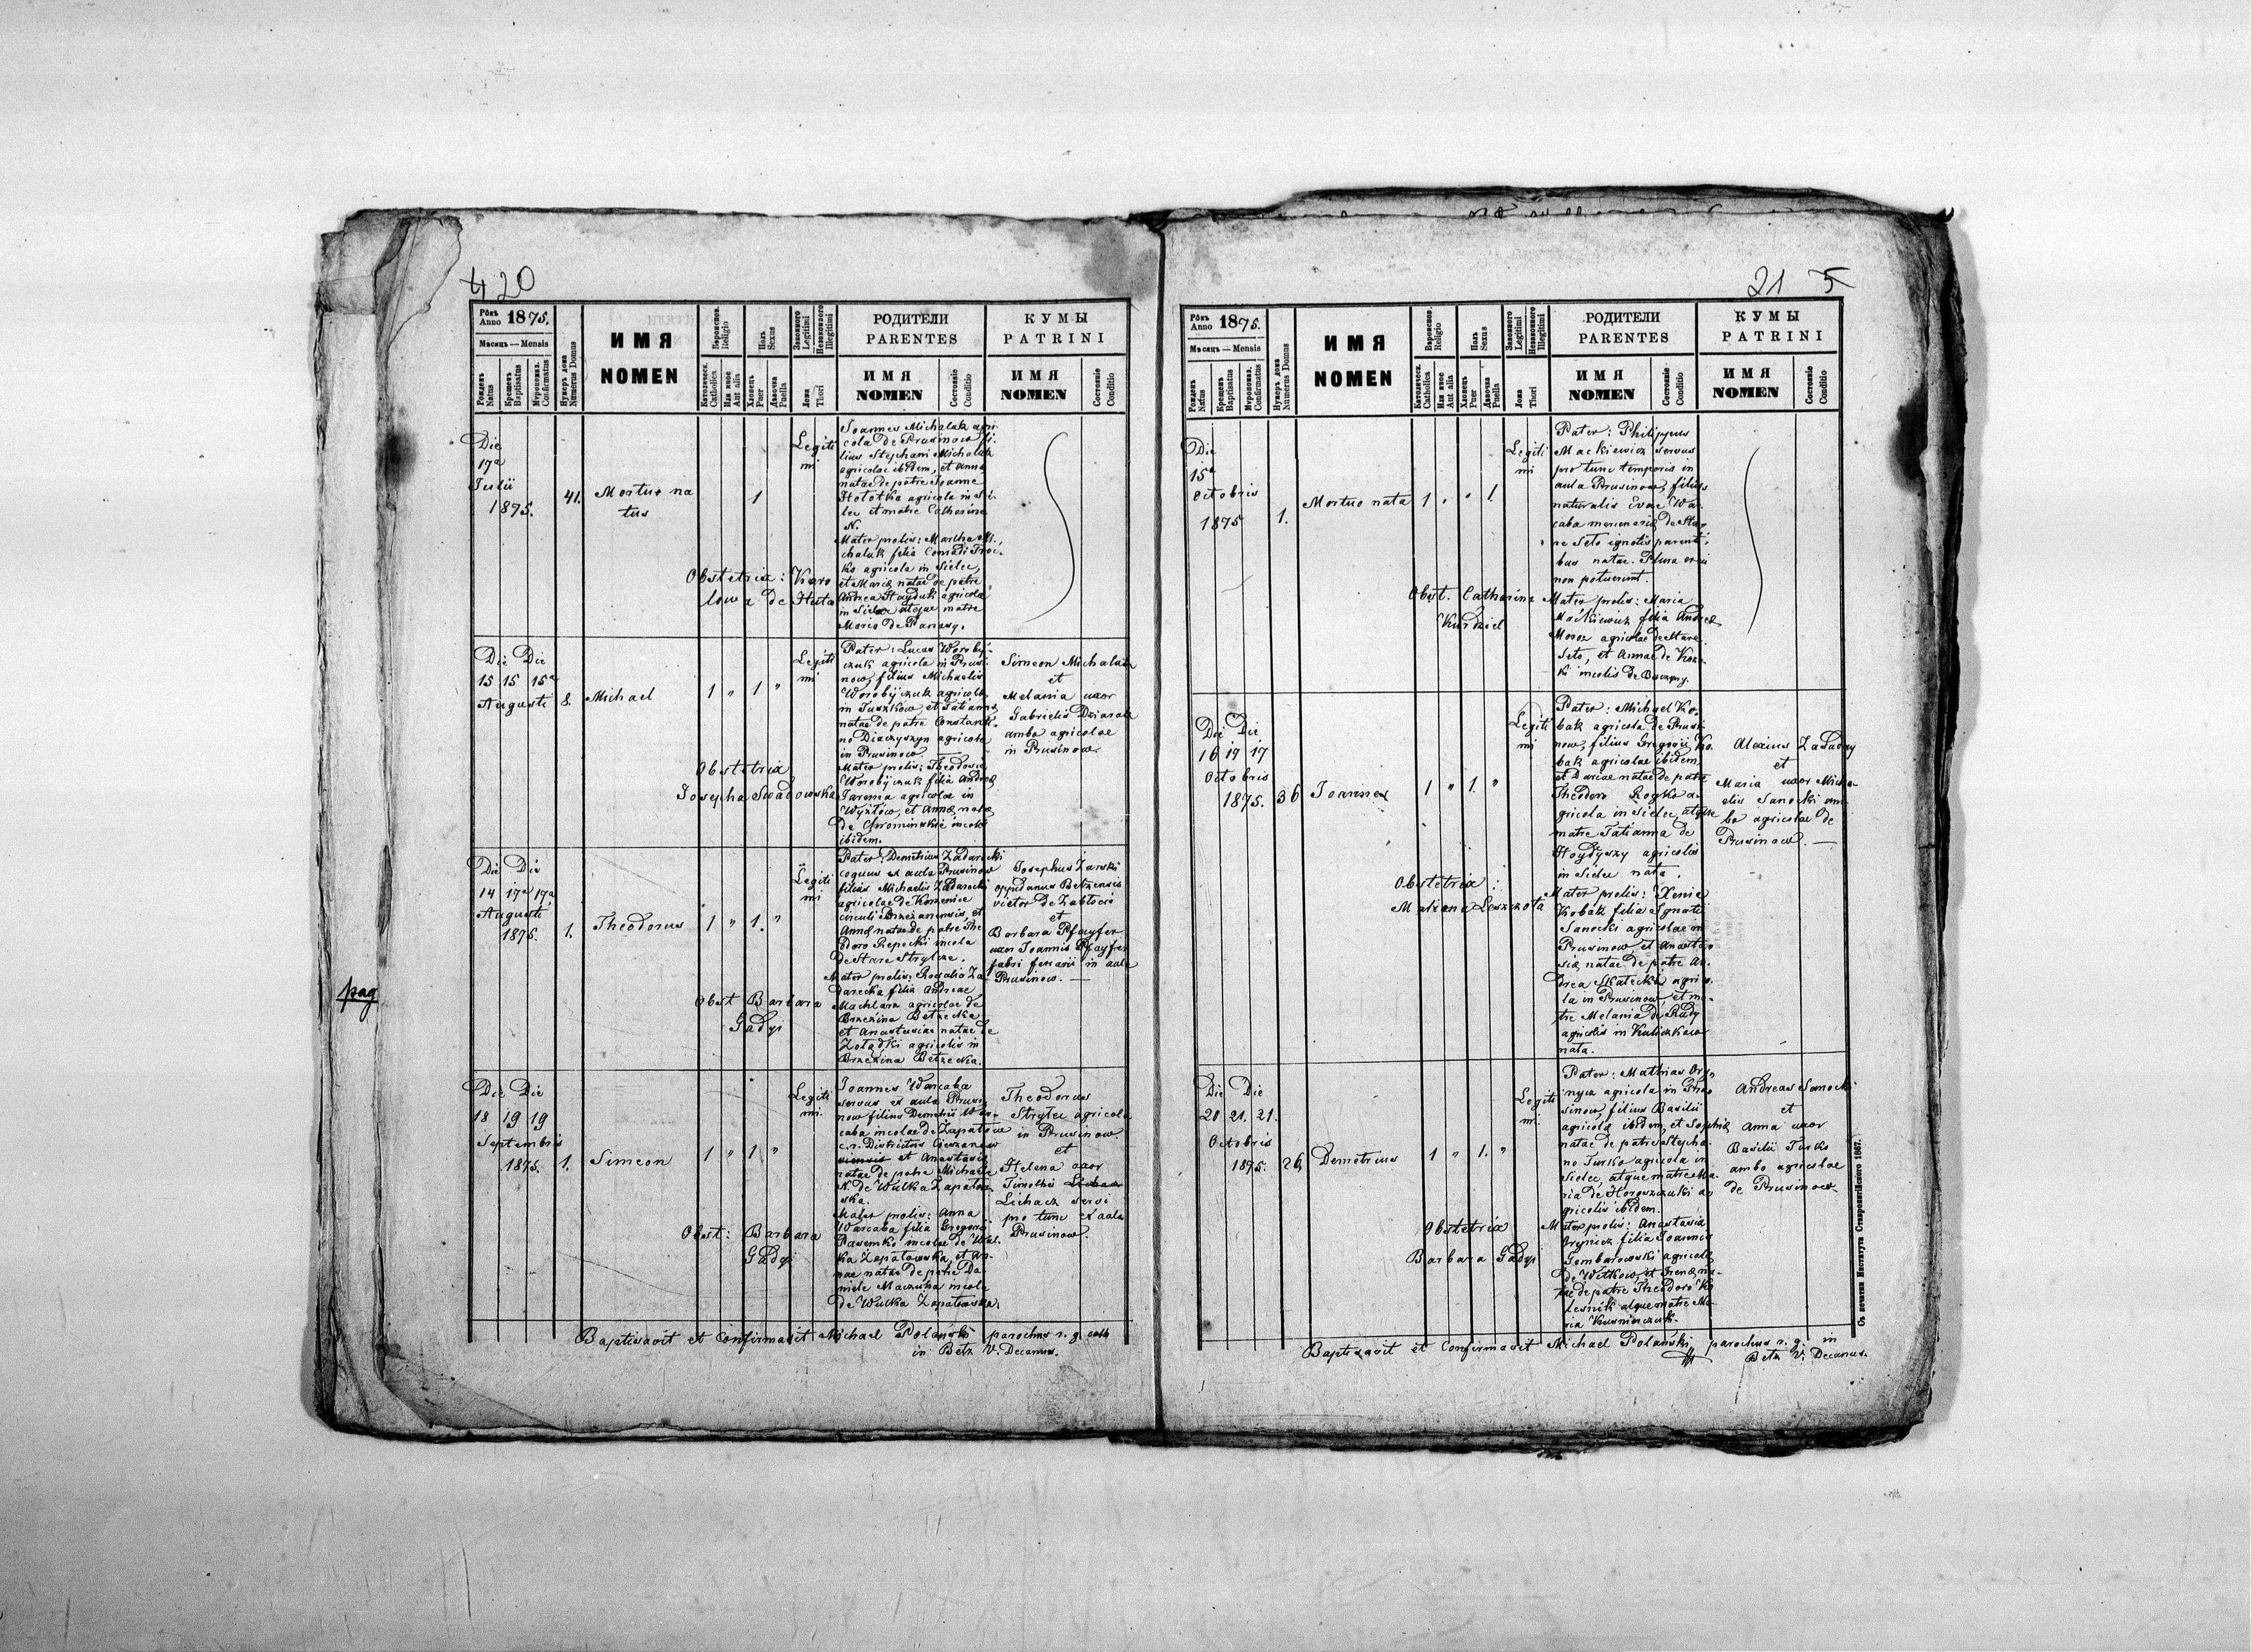 4 20
Рôкъ
Anno 1875.
Мѣсяцъ — Mensis
Рожденъ
Natus
Крещенъ
Baptisatus
Мvропомаз.
Confirmatus
Нумеръ дома
Numerus Domus
ИМЯ
NOMEN
Religio
Католическ.
Catholica
Или иное
Aut alia
Полъ
Sexus
Хлопецъ
Puer
Дѣвочка
Puella
Законного
Legitimi
Незаконного
Illegitimi
Ложа
Thori
РОДИТЕЛИ
PARENTES
ИМЯ
NOMEN
Состояніе
Conditio
КУМЫ
PATRINI
ИМЯ
NOMEN
Состояніе
Conditio
Die
17a
Julii
1875.
41.
Mortuo na
tus
1
Legiti
mi
Joannes Michaluk agri
cola de Prusinow fi-
lius Stephani Michaluk
agricolae ibidem, et Anna
natae de patre Joanne
Hołotka agricola in Si-
lec et matre Catherina
N.
Mater prolis: Martha Mi-
chaluk filia Conradi Proc-
ko agricola in Sielec,
et Mariæ natae de patre
Andrea Hayduk agricola
in Sielec atque matre
Maria de Panasy.
Obstetrix: Karo
lowa de Huta
Die Die
15 15 15a
Augusti
8.
Michael
1 " 1 "
Legiti
mi
Pater: Lucas Woroby-
czuk agricola in Prusi-
now, filius Michaelis
Worobyczuk agricola
in Tuszków et Tatianna
natae de patre Constanti-
no Diaczyszyn agricola
in Prusinow.
Mater prolis: Theodosia
Worobyczuk filia Andreæ
Jarema agricolae in
Wyżłów, et Annæ natæ
de Chrominskie incolæ
ibidem.
Simeon Michaluk
et
Melania uxor
Gabrielis Dziarak
ambo agricolae
in Prusinow.
Obstetrix
Josepha Swadowska
Die Die
14 17a 17a
Augusti
1875.
1.
Theodorus
1 " 1. "
Legiti
mi
Pater: Demetrius Zadarecki
coquus ex aula Prusinow
filius Michaelis Zadarecki
agricolae de Korzenice
circuli Brzezanensis, et
Annæ natae de patre The
odoro Rzepecki incola
de Stare Strylcze.
Mater prolis: Rosalia Za-
darecka filia Andreae
Machlarz agricolae de
Brzezina Betzecka
et Anastasiae natae de
Zołądki agricolis in
Brzezina Betzecka.
Josephus Zarski
oppidanus Betzensis
victor de Zabłocie
et
Barbara Pfayfer
uxor Joannis Pfayfer
fabri ferrarii in aula
Prusinow.
Obst Barbara
Gadyi
Die Die
18 19 19
Septembris
1875.
1.
Simeon
1 " 1 "
Legiti
mi.
Joannes Warcaba
servus ex aula Prusi-
now filius Demetrii War-
caba incolae de Łapatow
c.r. Districtus Cieszanow
viensis et Anastasiæ
natae de patre Michaele
N. de Wulka Zapałow
ska.
Mater prolis: Anna
Warcaba filia Gregorii
Pasemko incolae de Wul-
ka Zapałowska, et An-
nae natae de patre Da-
niele Maczuka incola
de Wulka Zapałowska.
Theodorus
Strylec agricola
in Prusinow
et
Helena uxor
Timothei
Lichacz servi
pro tunc ex aula
Prusinow.
Obst: Barbara
Gadyi
Baptisavit et Confirmavit Michael Polański parochus r. g. cath
in Betz V. Decanus.
pag
21 5
Рôкъ
Anno 1875.
Мѣсяцъ — Mensis
Рожденъ
Natus
Крещенъ
Baptisatus
Мvропомаз.
Confirmatus
Нумеръ дома
Numerus Domus
ИМЯ
NOMEN
Religio
Католическ.
Catholica
Или иное
Aut alia
Полъ
Sexus
Хлопецъ
Puer
Дѣвочка
Puella
Законного
Legitimi
Незаконного
Illegitimi
Ложа
Thori
РОДИТЕЛИ
PARENTES
ИМЯ
NOMEN
Состояніе
Conditio
КУМЫ
PATRINI
ИМЯ
NOMEN
Состояніе
Conditio
Die
15a
Octobris
1875
1.
Mortuo nata
1 " " 1.
Legiti
mi
Pater: Philippus
Mackiewicz servus
pro tunc temporis in
aula Prusinow, filius
naturalis Evae War-
caba mercenariæ de Sta-
re Seło ignotis parenti-
bus natae. Plura erui
non potuerunt.
Mater prolis: Maria
Mackiewicz filia Andreæ
Moroz agricolae de Stare
Seło, et Annae de Koz-
ki incolis de
Obst. Catharina
Kurdziel
Die Die
16 17 17
Octobris
1875.
36
Joannes
1 " 1. "
Legiti
mi
Pater: Michael Ko-
bak agricola de Prusi-
now, filius Gregorii Ko-
bak agricolae ibidem,
et Dariae natae de patre
Theodoro Rogko a-
gricola in Sielec, atque
matre Tatianna de
Hoydyszy agricolis
in Sielec nata.
Mater prolis: Xenia
Kobak filia Ignatii
Sanocki agricolae in
Prusinow et Anasta-
siæ natae de patre An-
drea Skalecki agrico-
la in Prusinow, et ma-
tre Melania de Rudy
agricolis in Kuliczkow
nata.
Alexius Zasadny
et
Maria uxor Micha-
elis Sanocki am-
bo agricolae de
Prusinow.
Obstetrix:
Mariana Leszczota
Die Die
20 21. 21.
Octobris
1875.
26
Demetrius
1 " 1. "
Legiti
mi.
Pater: Mathias Ory-
nycz agricola in Pru-
sinow, filius Basilii
agricolæ ibidem, et Sophiæ
natae de patre Stepha-
no Turko agricola in
Sielec, atque matre Ma-
ria de Horoszczuki a-
gricolis ibidem.
Mater prolis: Anastasia
Orynicz filia Joannis
Gembarowski agricolæ
de Witkow, et Irenæ na-
tae de patre Theodoro Ko-
lesnik atque matre Ma-
ria Kusnierczuk.
Andreas Sanocki
et
Anna uxor
Basilii Turko
ambo agricolae
de Prusinow
Obstetrix
Barbara Gadyi
Baptisavit et Confirmavit Michael Polański, parochus r. g. in
Betz V. Decanus.
Съ печатни Института Ставропигійского 1867.